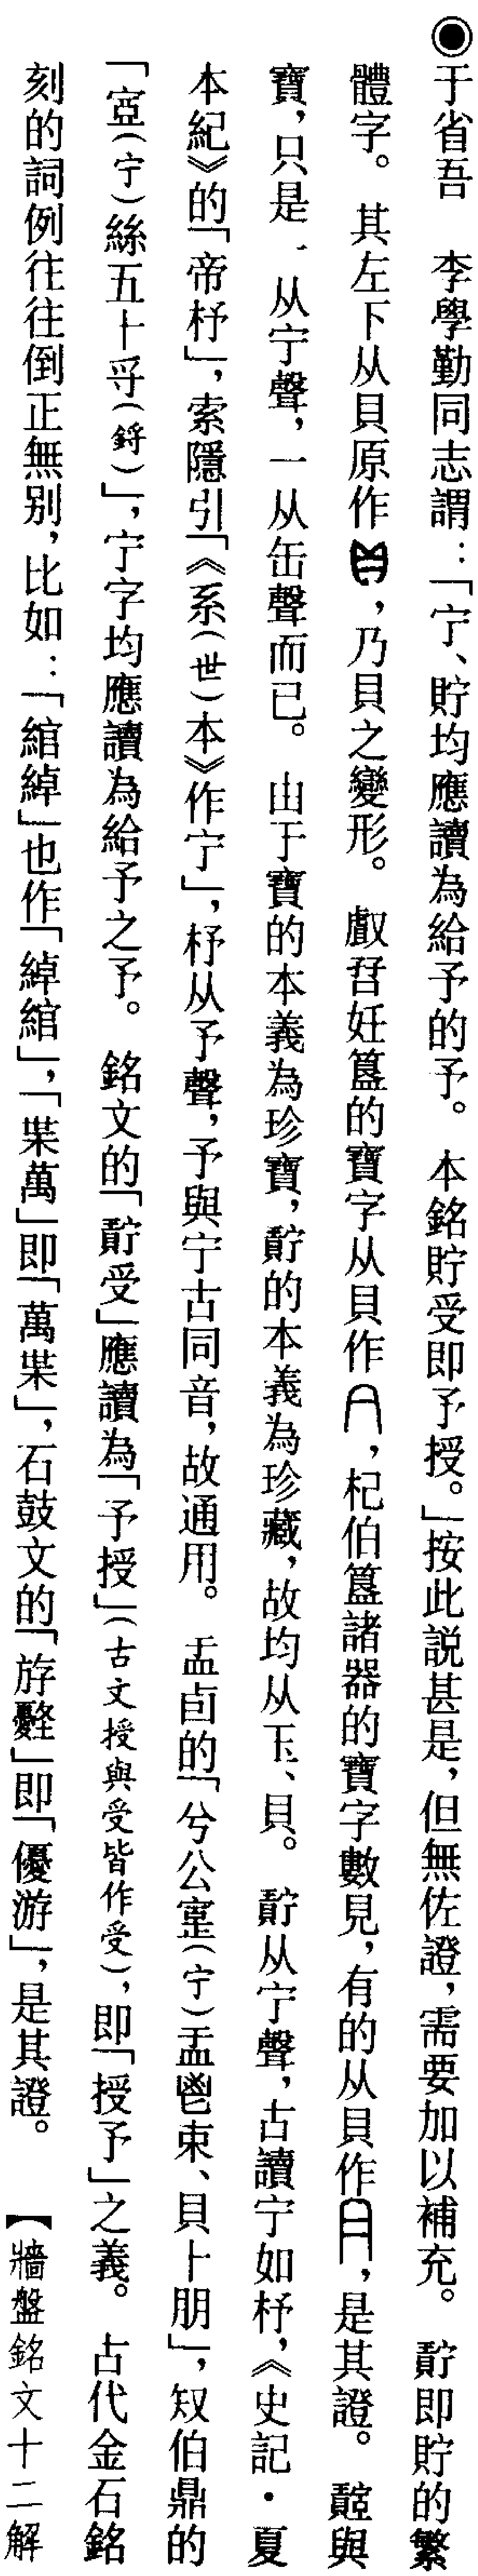 ◉于省吾　李學勤同志謂：「宁、貯均應讀為給予的予。本銘貯受即予授。」按此說甚是，但無佐證，需要加以補充。即貯的繁
體字。其左下从貝原作，乃貝之變形。㪤妊簋的寶字从貝作，杞伯簋諸器的寶字數見，有的从貝作，是其證。與
寶，只是一从宁聲，一从缶聲而已。由于寶的本義為珍寶，的本義為珍藏，故均从玉、貝。从宁聲，古讀宁如杼，《史記·夏
本紀》的「帝杼」，索隱引「《系（世）本》作宁」，杼从予聲，予與宁古同音，故通用。盂卣的「兮公（宁）盂鬯束、貝十朋」，㕞伯鼎的
「（宁）絲五十寽（鋝）」，宁字均應讀為給予之予。銘文的「受」應讀為「予授」（古文授與受皆作受），即「授予」之義。古代金石銘
刻的詞例往往倒正無別，比如：「綰綽」也作「綽綰」，「枼萬」即「萬枼」，石鼓文的「」即「優游」，是其證。【牆盤銘文十二解